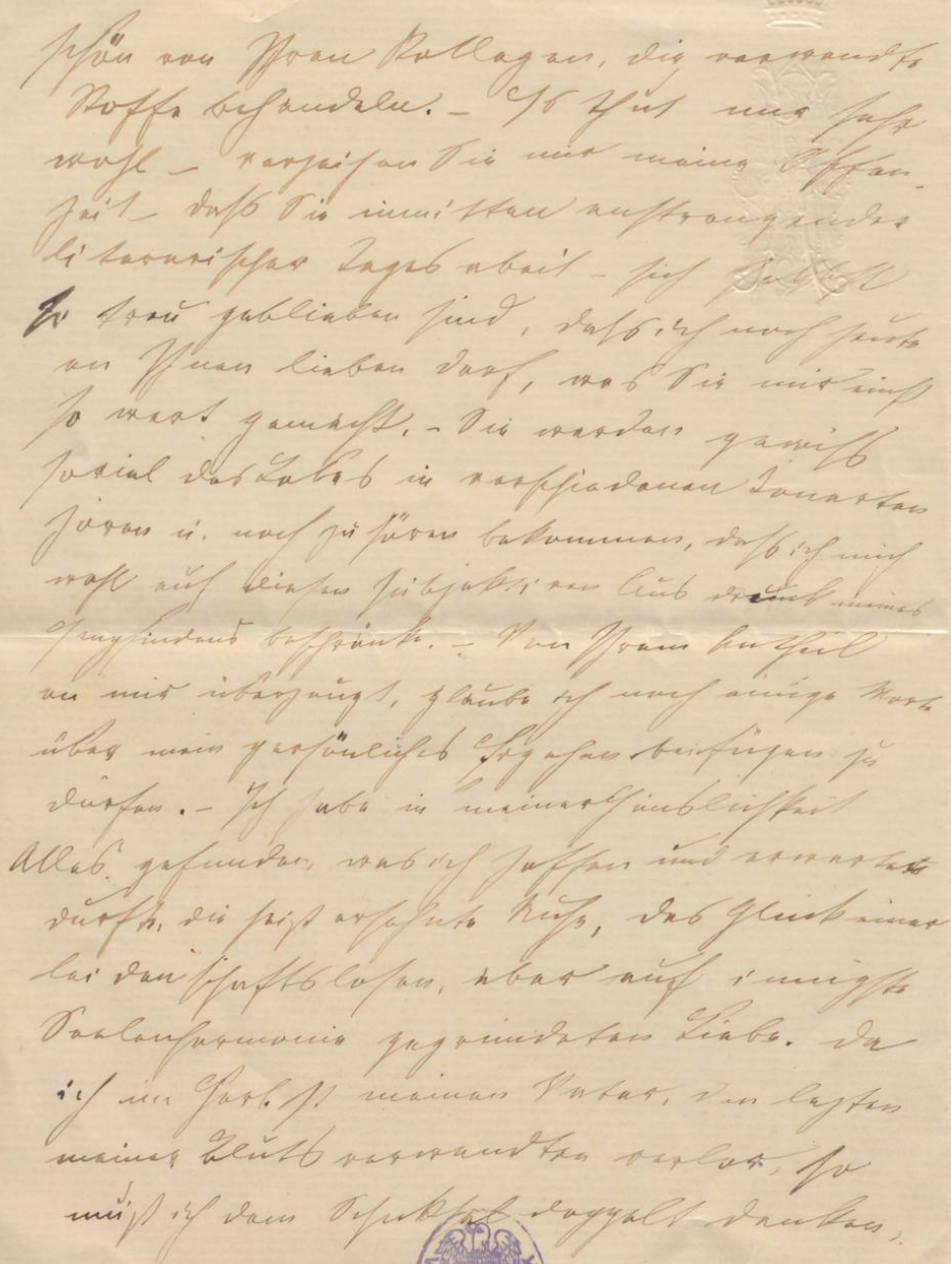 schön von Ihren Kollegen, die verwandte
Stoffe behandeln. – Es thut mir sehr
wohl – verzeihen Sie mir meine Offen-
heit – daß Sie inmitten anstrengender
literarischer Tages arbeit – sich selbst
so treu geblieben sind, daß ich noch heute
an Ihnen lieben darf, was Sie mir einst
so wert gemacht. – Sie werden gewiß
soviel des Lobes in verschiedenen Tonarten
hören u. noch zu hören bekommen, daß ich mich
wohl auf diesen subjektiven Ausdruck meines
Empfindens beschränke. – Von Ihrem Antheil
an mir überzeugt, glaube ich noch einige Worte
über mein persönliches Ergehen beifügen zu
dürfen. – Ich habe in meiner Häuslichkeit
Alles gefunden, was ich hoffen und erwarten
durfte, die heiß ersehnte Ruhe, das Glück einer
leidenschaftslosen, aber auf innigste
Seelenharmonie gegründeten Liebe. Da
ich im Herbst meinen Vater, den lezten
meiner Blutsverwandten verlor, so
muß ich dem Schicksal doppelt danken,